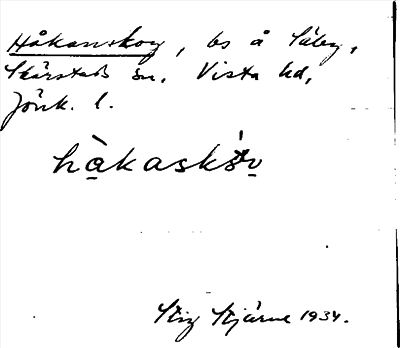 Håkanskog, bs å Säby,
Skärstads sn. Vista hd,
Jönk. l.
hàkaskóv
Stig Stjärne 1934.